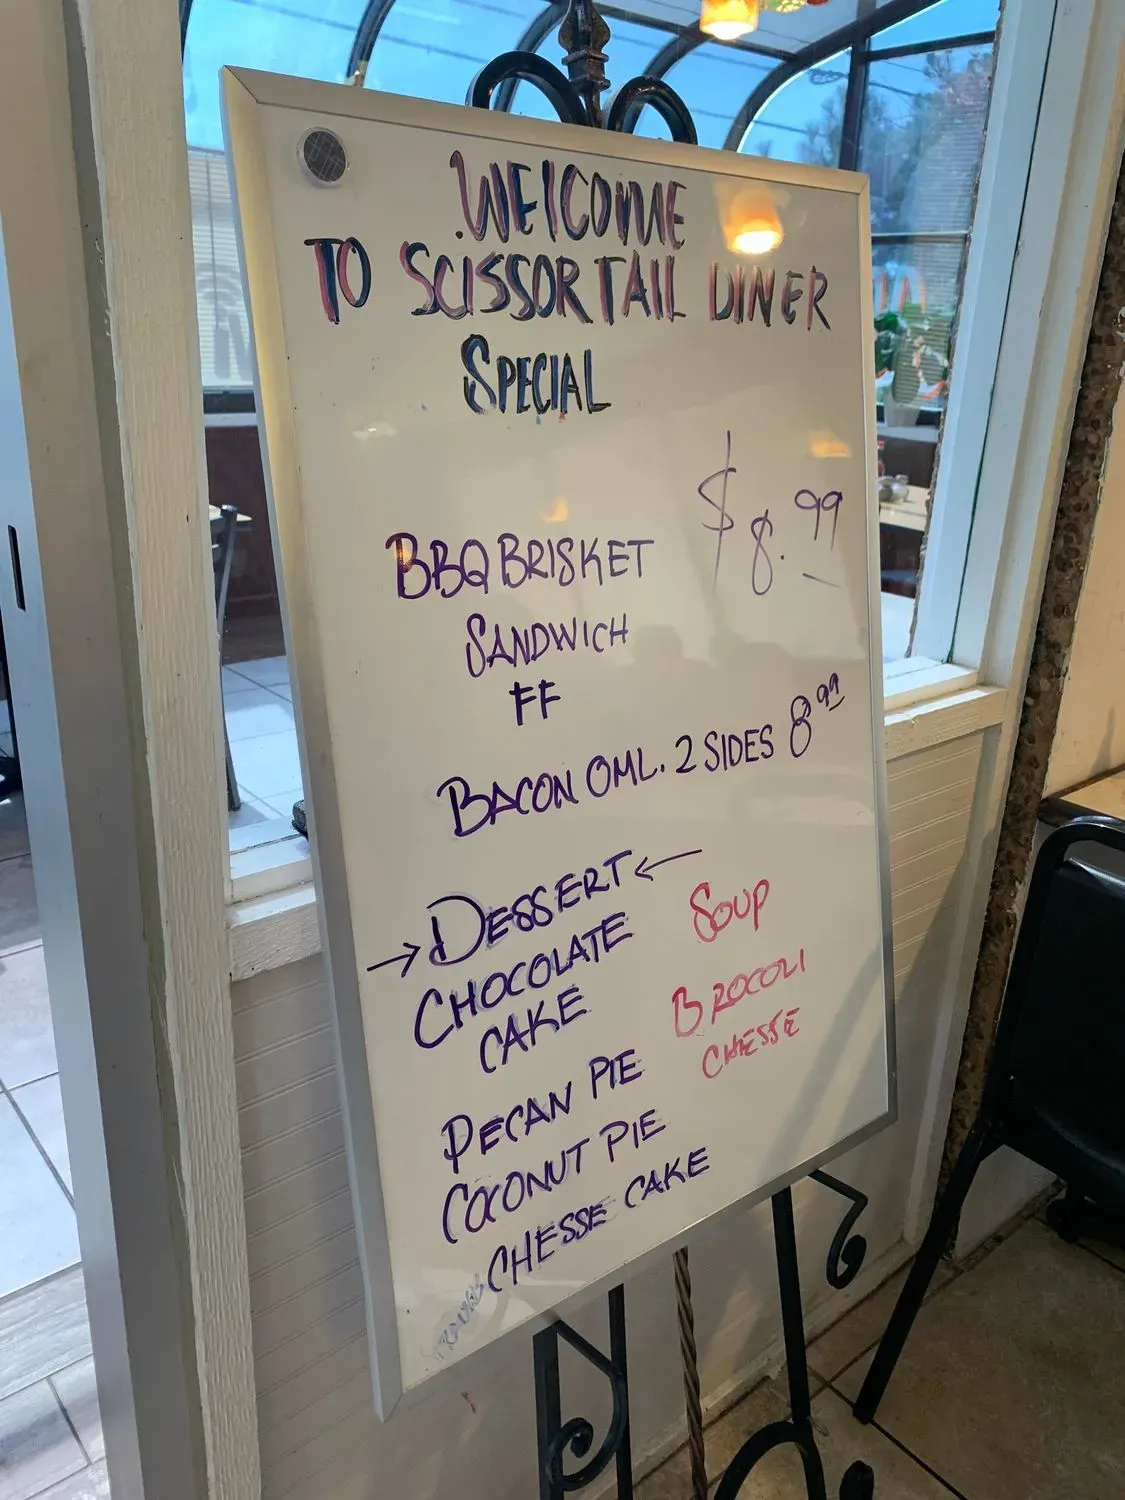 WELCOME
TO SCISSORTAIL DINER
SPECIAL
$8.99
BBQ BRISKET
SANDWICH
FF
BACON OML. 2 SIDES 8 99
→ DESSERT ←
CHOCOLATE
CAKE
PECAN PIE
COCONUT PIE
CHESSE CAKE
SOUP
BROCOLI
CHESSE